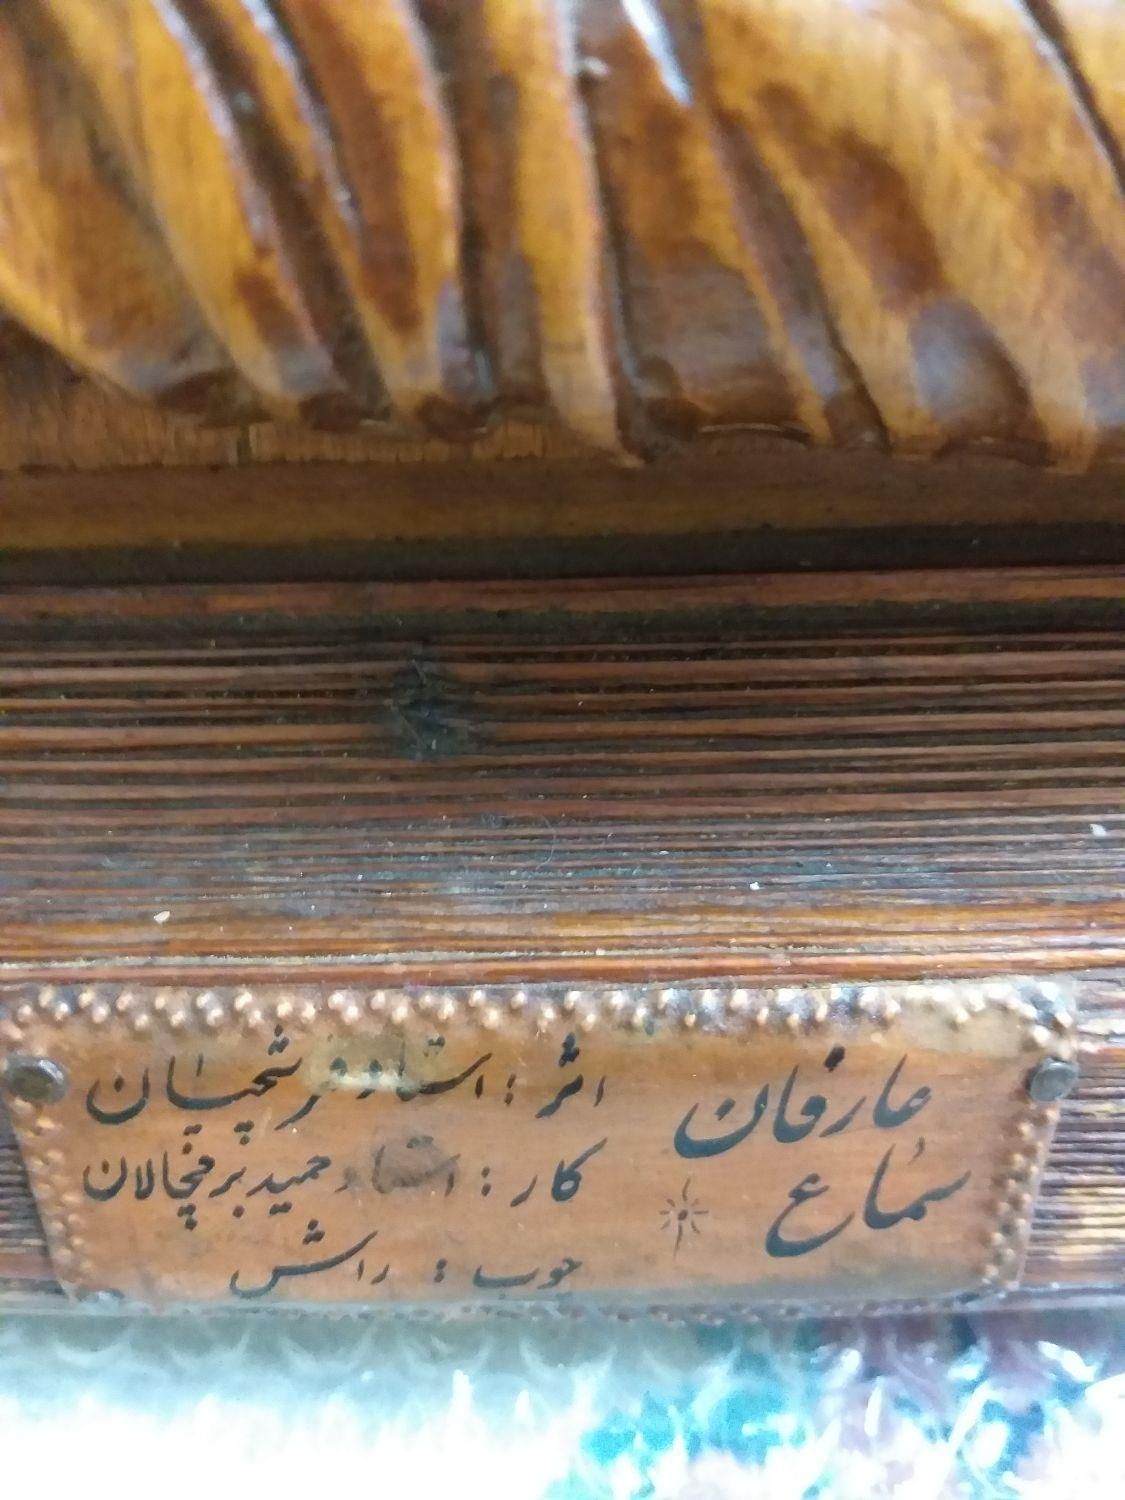 عارفان
سماع
اثر : استاد فرشچیان
کار : استاد حمید برفنچالان
چوب : راش